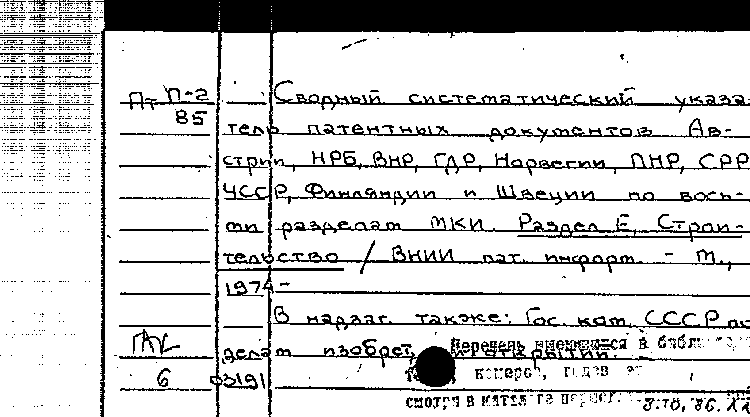 Пт П-2 Сводный систематический указа-
85
тель патентных документов Ав-
стрии, НРБ, ВНР, ГДР, Норвегии, ПНР, СРР
ЧССР, Финляндии и Швеции по вось-
ми разделам МКИ. Раздел Е. Строи-
тельство / ВНИИ пат. информ. - М.,
1974-
В надзаг. также: Гос. ком. СССР по
делам изобрет. и открытий.
6 03191
Перечень имеющихся в библ
номеров, годов
смотри в каталоге
8.10.86.